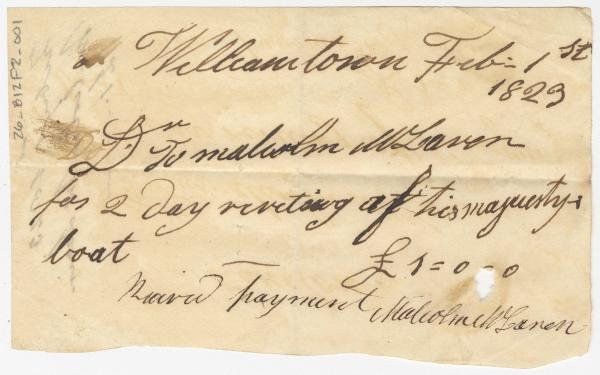 Williamstown Feb- 1st
1823
Dr To malcolm McLaren
for 2 day riviting of his majustys
boat £ 1=0-0
Receivd payment Malcolm McLaren
26-B12F2-001